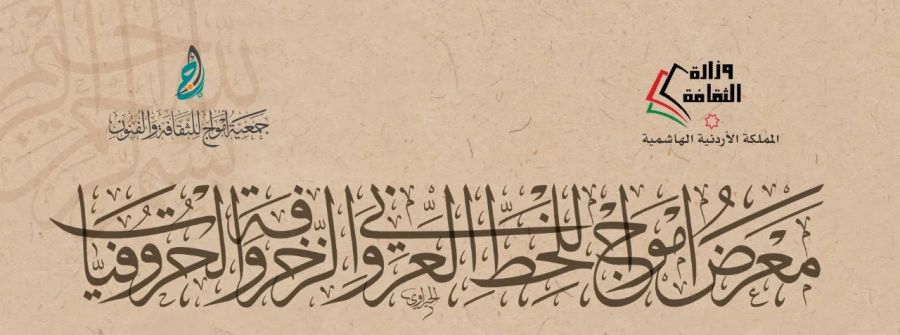 وزارة
الثقافة
المملكة الأردنية الهاشمية
جمعية أمواج للثقافة والفنون
معرض أمواج للخط العربي والزخرفة والحروفيات